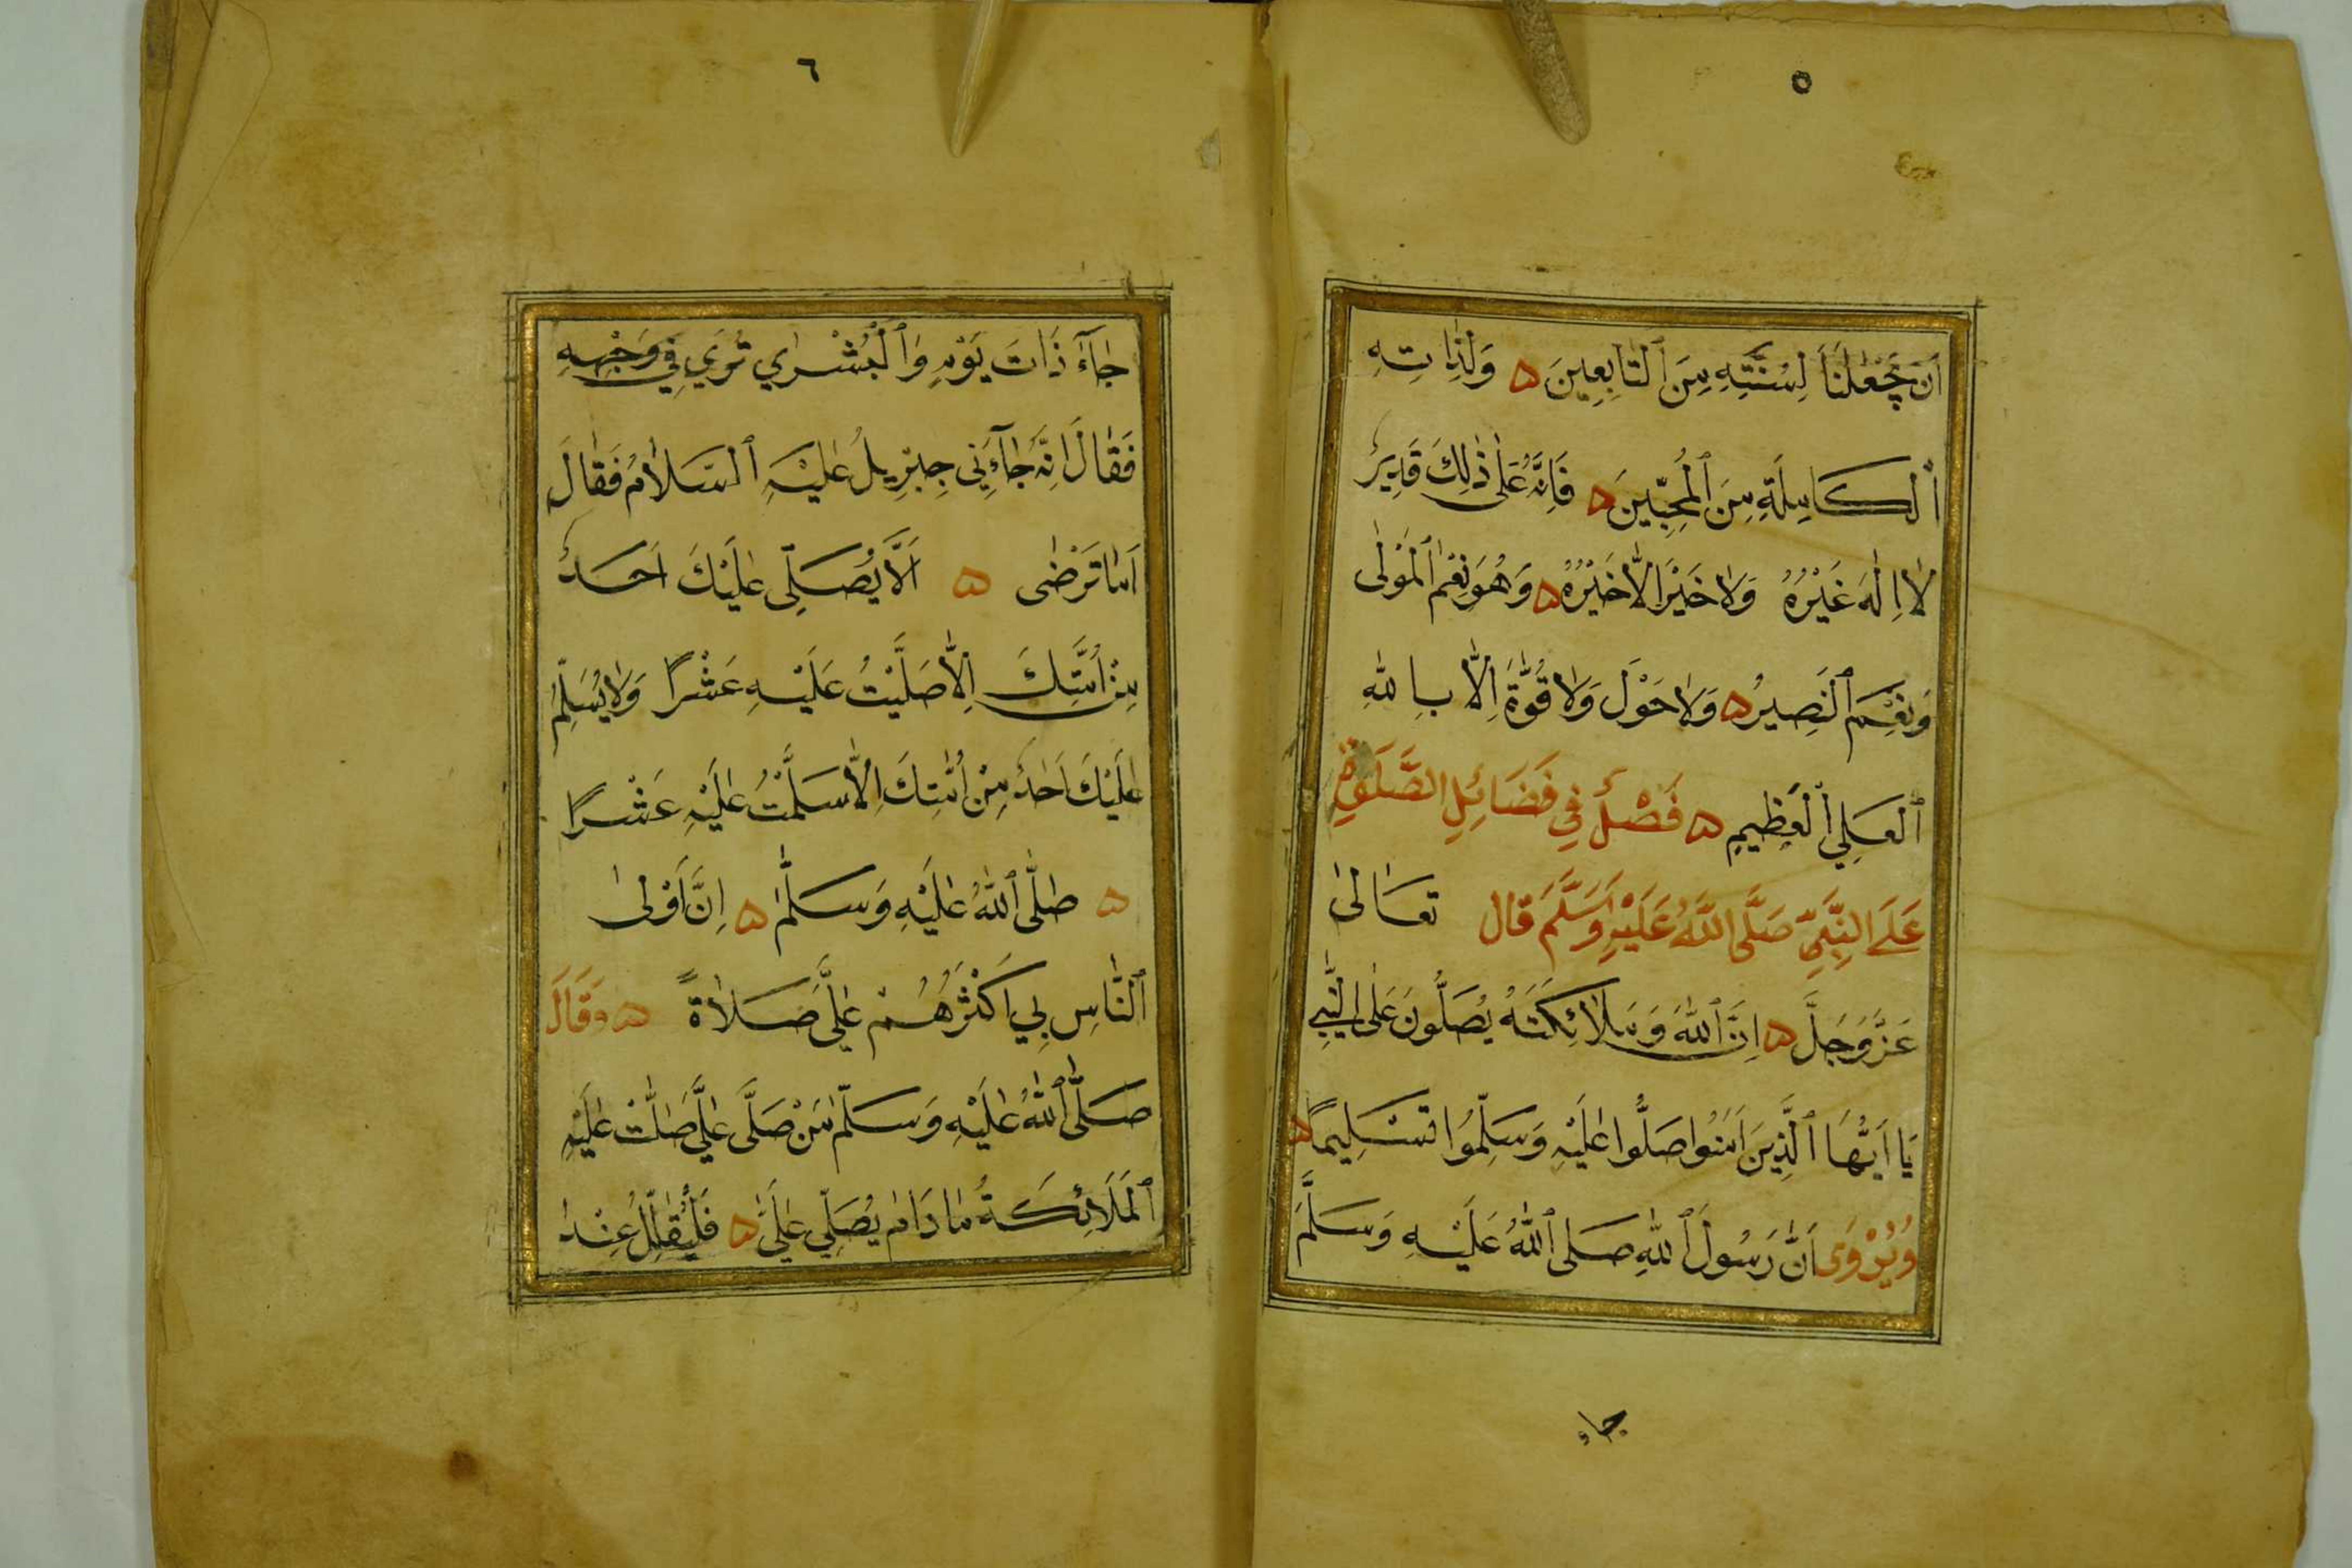 ٥
اَنْ يَجْعَلَنَا لِسُنَّتِهِ مِنَ ٱلتَّابِعِينَ ۵ وَلِذَاتِهِ
ٱلْكَامِلَةِ مِنَ ٱلْمُحِبِّينَ ۵ فَاِنَّهُ عَلَى ذٰلِكَ قَدِيرٌ
لَا اِلٰهَ غَيْرُهُ وَلَا خَيْرَ اِلَّا خَيْرُهُ ۵ وَهُوَ نِعْمَ ٱلْمَوْلٰى
وَنِعْمَ ٱلنَّصِيرُ ۵ وَلَا حَوْلَ وَلَا قُوَّةَ اِلَّا بِاللّٰهِ
ٱلْعَلِيِّ ٱلْعَظِيمِ ۵ فَصْلٌ فِي فَضَائِلِ الصَّلَوةِ
عَلَى النَّبِيِّ صَلَّى اللَّهُ عَلَيْهِ وَسَلَّمَ قَالَ تَعَالٰى
عَزَّ وَجَلَّ ۵ اِنَّ ٱللّٰهَ وَمَلَائِكَتَهُ يُصَلُّونَ عَلَى النَّبِيِّ
يَا اَيُّهَا ٱلَّذِينَ اٰمَنُوا صَلُّوا عَلَيْهِ وَسَلِّمُوا تَسْلِيمًا ۵
وَيُرْوَى اَنَّ رَسُولَ ٱللّٰهِ صَلَّى ٱللّٰهُ عَلَيْهِ وَسَلَّمَ
جاء
٦
جَآءَ ذَاتَ يَوْمٍ وَٱلْبُشْرٰي تُرَي فِي وَجْهِهِ
فَقَالَ اِنَّهُ جَآءَنِي جِبْرِيلُ عَلَيْهِ ٱلسَّلَامُ فَقَالَ
اَمَا تَرْضٰى ۵ اَلَّا يُصَلِّى عَلَيْكَ اَحَدٌ
مِنْ اُمَّتِكَ اِلَّا صَلَّيْتُ عَلَيْهِ عَشْرًا وَلَا يُسَلِّمُ
عَلَيْكَ اَحَدٌ مِنْ اُمَّتِكَ اِلَّا سَلَّمْتُ عَلَيْهِ عَشْرًا
۵ صَلَّى ٱللّٰهُ عَلَيْهِ وَسَلَّمَ ۵ اِنَّ اَوْلٰى
ٱلنَّاسِ بِي اَكْثَرُهُمْ عَلَيَّ صَلَاةً ۵ وَقَالَ
صَلَّى ٱللّٰهُ عَلَيْهِ وَسَلَّمَ مَنْ صَلَّى عَلَيَّ صَلَّتْ عَلَيْهِ
ٱلْمَلَائِكَةُ مَا دَامَ يُصَلِّي عَلَيَّ ۵ فَلْيُقَلِّلْ عِنْدَ